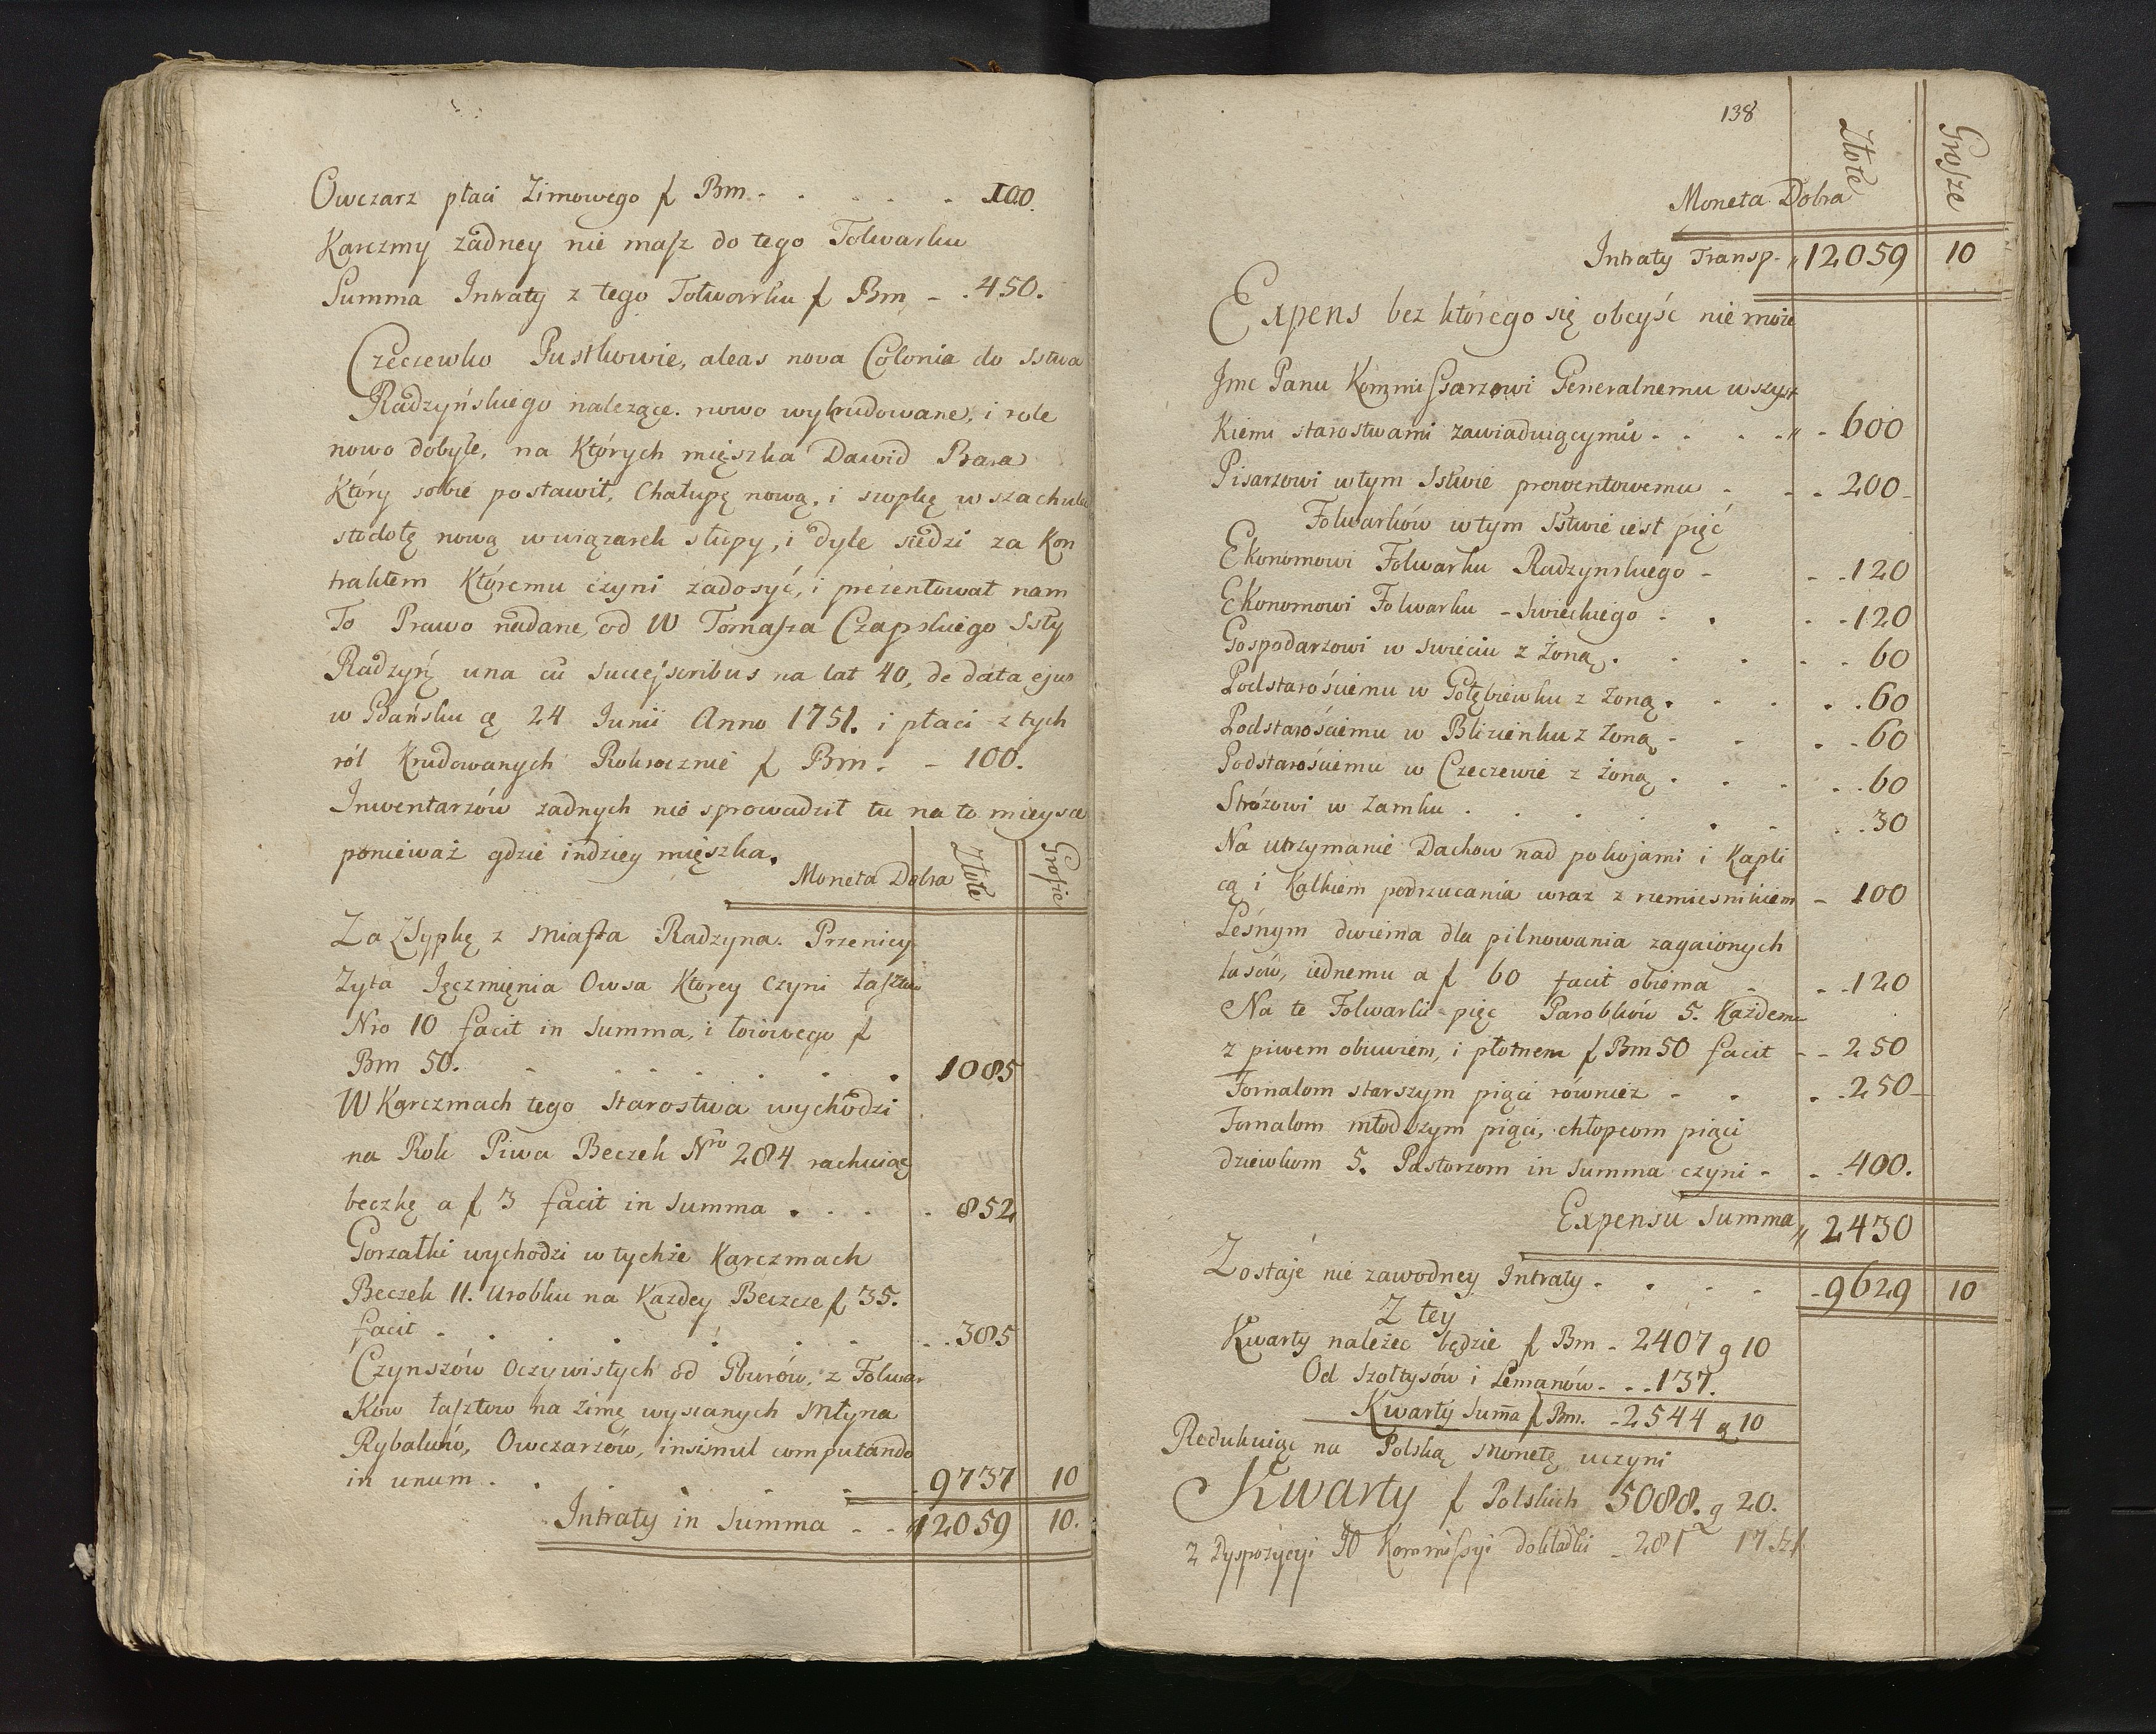 Owczarz płaci Zimowego f Bm - . . . . 100.
Karczmy żadney nie masz do tego Folwarku
Summa Intraty z tego Folwarku f Bm - . 450.
Czeczewko Pustkowie, aleas nova Colonia do Sstwa
Radzyńskiego należące. nowo wykrudowane, i role
nowo dobyłe, na Których mięszka Dawid Bara
Który sobie postawił, Chałupę nową, i szopkę w szachulec
stodołę nową w wiązarek słupy, i dyle siedzi za Kon
traktem Któremu czyni zadosyć, i prezentował nam
To Prawo nadane, od W Tomasza Czapskiego Ssty
Radzyń una cū successoribus na lat 40, de data ejus
w Gdańsku 24 Junii Anno 1751. i płaci z tych
ról Krudowanych Rokrocznie f Bm - - 100.
Inwentarzów żadnych nie sprowadził tu na to mieysce
ponieważ gdzie indziey mięszka.
Moneta Dobra Złote Grosze
Za Zsypkę z Miasta Radzyna. Przenicy
Zyta Jęczmięnia Owsa Ktorey czyni łasztów
Nro 10 facit in Summa, i f
Bm 50. - - - - - - . 1085
W Karczmach tego Starostwa wychodzi
na Rok Piwa Beczek Nro 284 rachuiąc
beczkę a f 3 facit in Summa . . . . 852
Gorzałki wychodzi w tychże Karczmach
Beczek 11. Urobku na Kazdey Beczce f 35.
facit - . . . . . . . . 385
Czynszów Oczywistych od Gburów, z Folwar
Ków łasztow na zimę wysianych Młyna
Rybaków, Owczarzów, insimul computando
in unum . . . . . . 9737 10
Intraty in Summa - - 12059 10.
138
Złote Grosze
Moneta Dobra
Intraty Transp - 12059 10
Expens bez którego się obeyśc nie może
Jmc Panu Kommissarzowi Generalnemu wszyst
Kiemi starostwami zawiaduiącymu - . . - 600
Pisarzowi w tym Sstwie prowentowemu - - . 200 -
Folwarków w tym Sstwie iest pięć
Ekonomowi Folwarku Radzynskiego - - . 120
Ekonomowi Folwarku - Swieckiego - . . - 120
Gospodarzowi w Swieciu z Żoną . . . - . 60
Podstarościemu w Gołębiewku z Żoną . - . . . 60
Podstarościemu w Blizienku z Żoną - - . - 60
Podstarościemu w Czeczewie z Żoną . . . - . 60
Stróżowi w Zamku . . . . . . . 30
Na utrzymanie Dachow nad pokojami i Kapli
cą i Kalkiem podrzucania wraz z rzemiesnikiem - 100
Leśnym dwiema dla pilnowania zagaionych
lasów, iednemu a f 60 facit obiema - - . 120
Na te Folwarki pięc Parobków 5. Każdemu
z piwem obuwiem, i płotnem f Bm 50 facit - - 250
Fornalom starszym pięci również - . . . 250 -
Fornalom młodszym pięci, chłopcom pięci
dziewkom 5. Pastorzom in Summa czyni - - . 400.
Expensu Summa 2430
Zostaje nie zawodney Intraty . . . . - 9629 10
Z tey
Kwarty należec będzie f Bm - 2407 g 10
Od Szołtysów i Lemanów - . . 137.
Kwarty Suma f Bm. - 2544 g 10
Redukuiąc na Polską Monetę uczyni
Kwarty f Polskich 5088. g 20.
z Dyspozycyi Kommissyi dokładki - 281 17